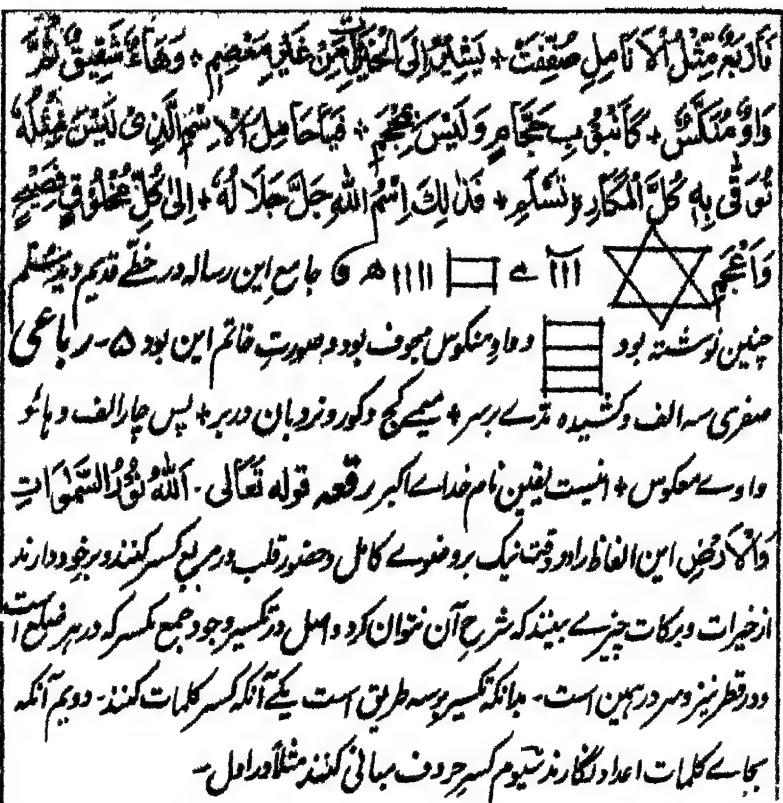 فَأَرْبَعٌ مِّثْلُ الْأَنَامِلِ صُفِّفَتْ + يَشِيرُ إِلَى الْخَيْرَاتِ مِنْ غَيْرِ مِعْصَمٍ + وَهَاءٌ شَقِيقٌ ثُمَّ
وَاوٌ مُنَكَّسٌ + كَأُنْبُوبِ حَجَّامٍ وَلَيْسَ بِمِحْجَمٍ + فَيَا حَامِلَ الْاِسْمِ الَّذِیْ لَیْسَ مِثْلُهٗ
تُوَقّٰی بِهٖ كُلَّ الْمَكَارِهِ تَسْلَمِ + فَذٰلِكَ اِسْمُ اللّٰهِ جَلَّ جَلَالُهٗ + اِلٰی كُلِّ مَخْلُوْقٍ فَصِیْحٍ
وَاَعْجَمِ ااا م اااا ھ و جامع این رساله در خطے قدیم دیدستلم
چنین نوشته بود و واو منکوس مجوف بود و صورتِ خاتم این بود ۵- رباعی
صفری سه الف و کشیده مدّے برسر + میمے کج و کور و نردبان در بر + پس چار الف و ہائو
واوے معکوس + اینست یقین نام خداے اکبر رقعه قوله تَعَالٰی- اَللّٰهُ نُوْرُ السَّمٰوَاتِ
وَالْاَرْضِ این الفاظ را در وقت نیک بروضوے کامل و حضور قلب در مربع کسر کنند و برخود دارند
از خیرات و برکات چیزے بینند که شرح آن نتوان کرد و اصل در تکسیر وجود جمع مکسر که در هر ضلع است
و در قطر نیز و سر در ہمین است- بدانکه تکسیر بر سه طریق است یکے آنکه کسر کلمات کنند- دویم آنکه
بجاے کلمات اعداد نگارند سیوم کسر حروف مبانی کنند مثلاً در اول-